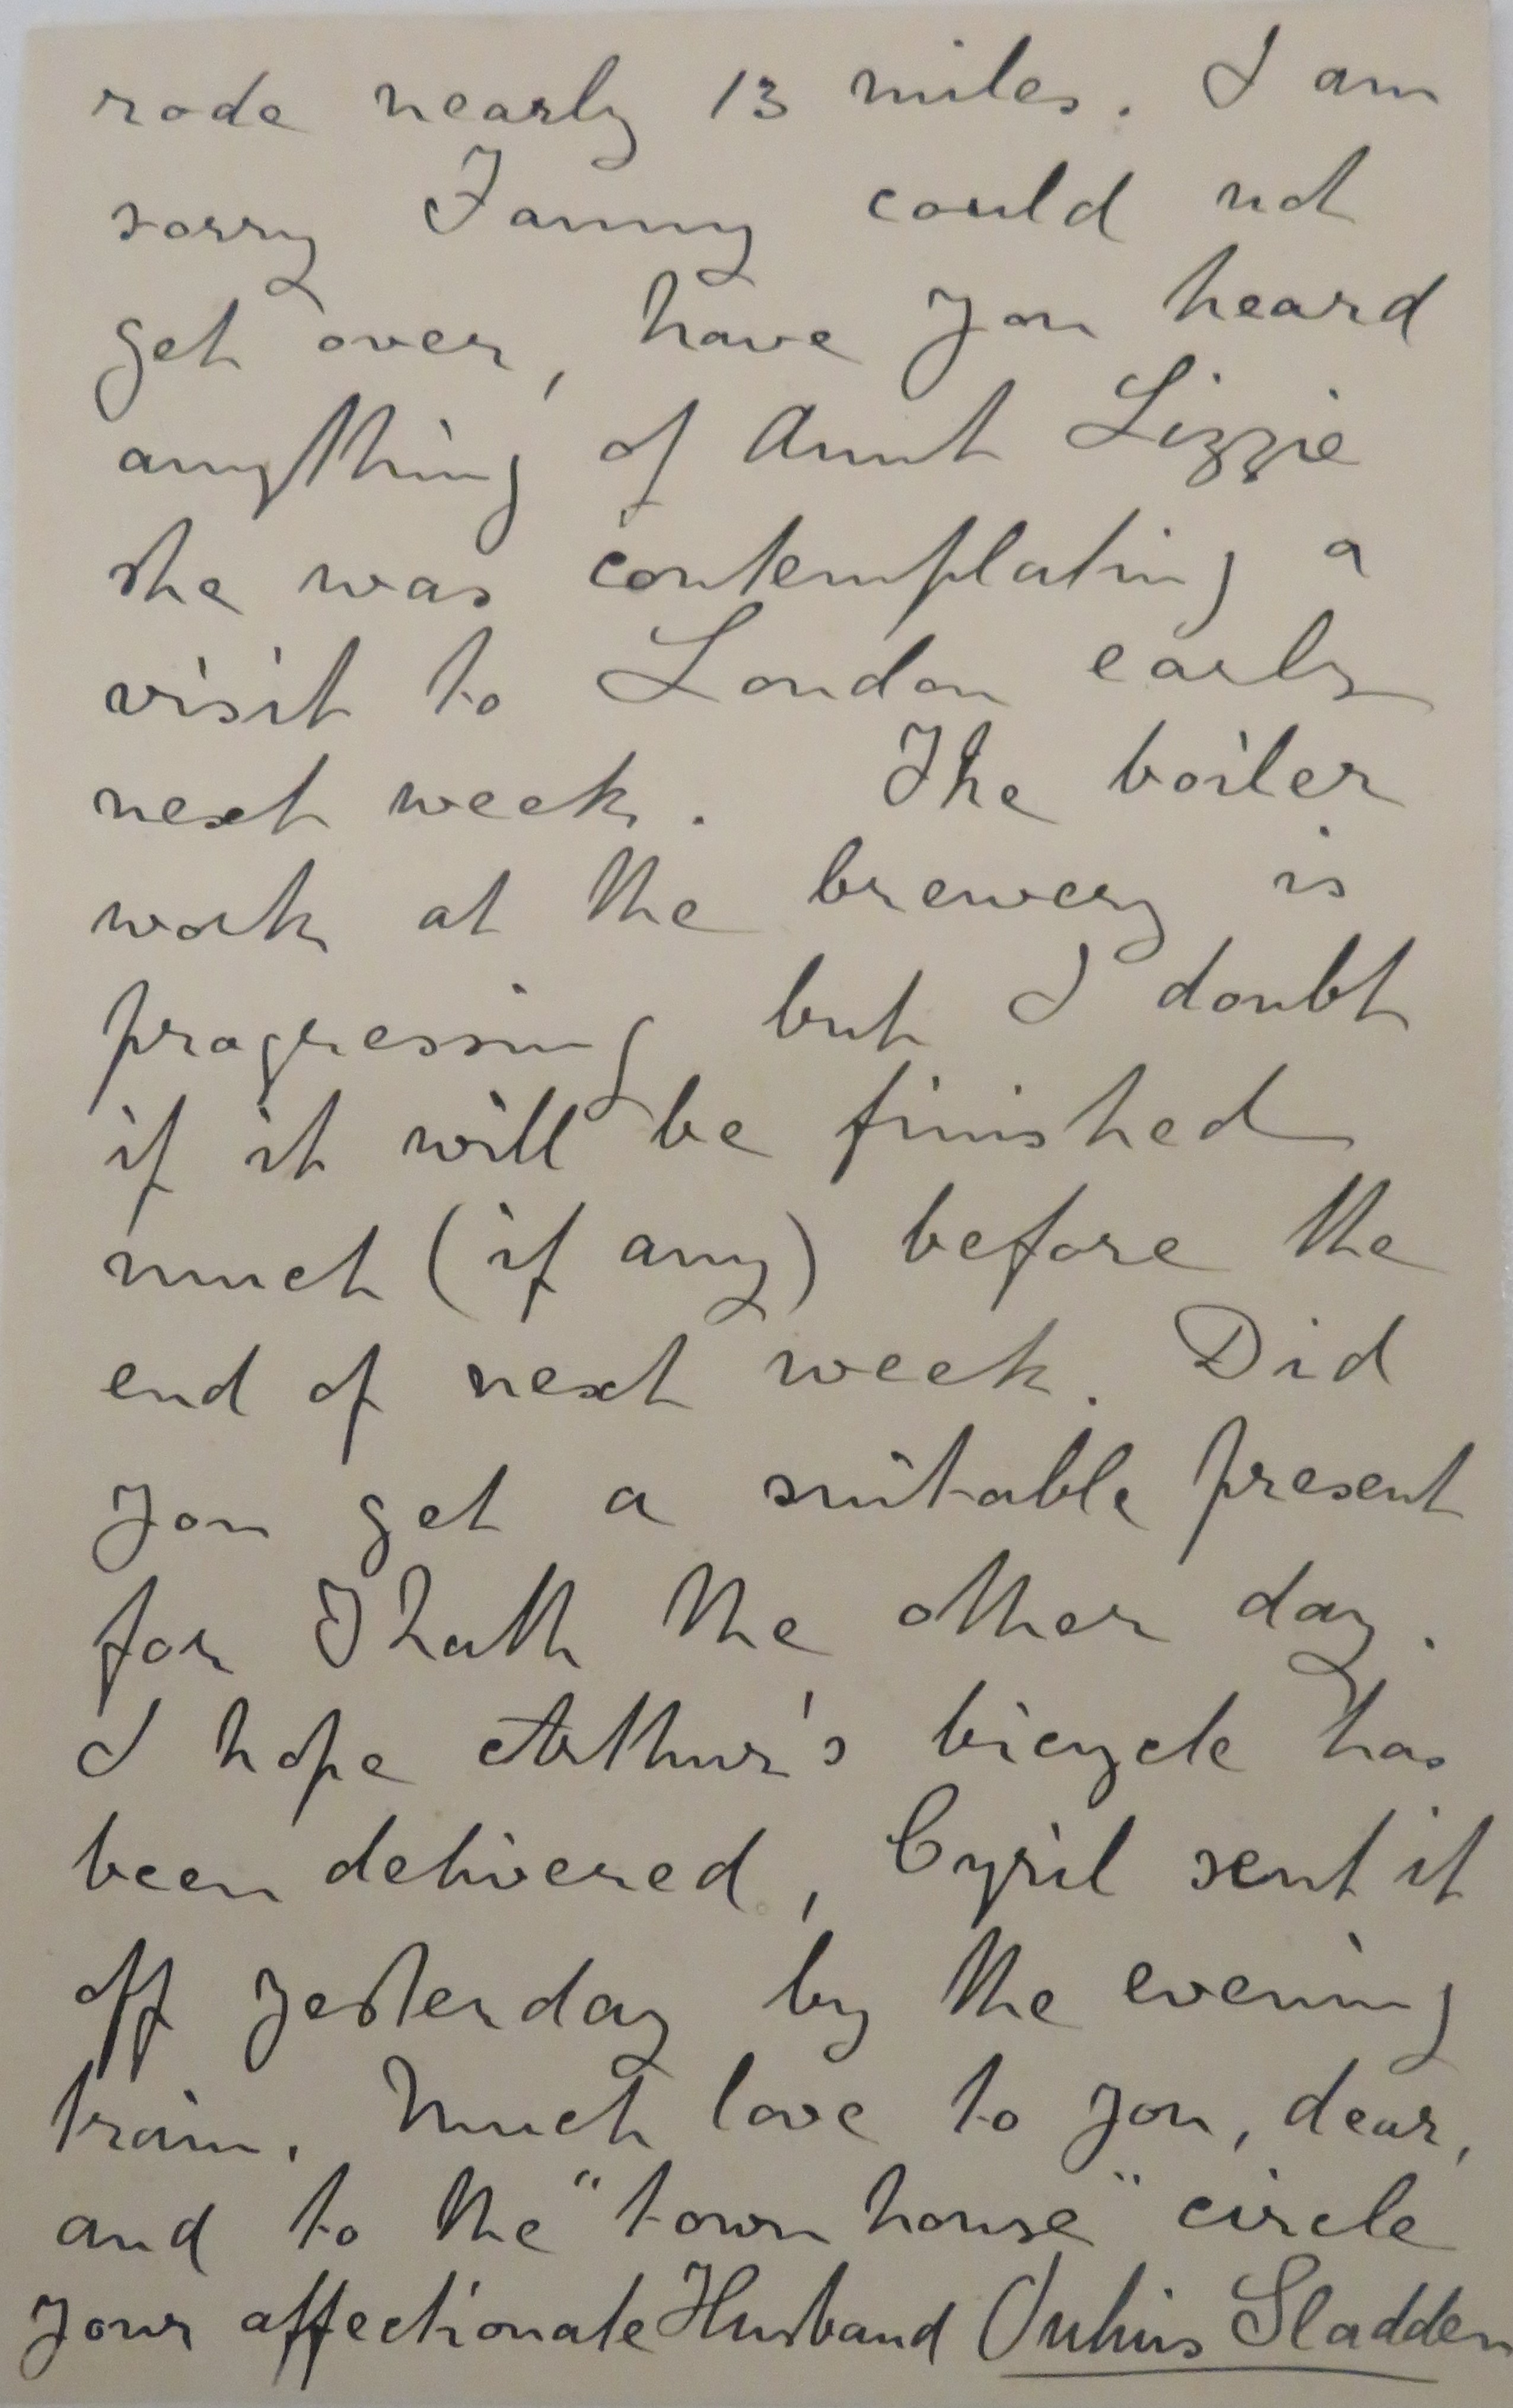 rode nearly 13 miles. I am
sorry Fanny could not
get over, have you heard
anything of Aunt Lizzie
she was contemplating a
visit to London early
next week. The boiler
work at the brewery is
progressing but I doubt
if it will be finished
much (if any) before the
end of next week. Did
you get a suitable present
for Kath the other day.
I hope Arthur's bicycle has
been delivered, Cyril sent it
off yesterday by the evening
train. Much love to you, dear,
and to the "town house" circle
your affectionate Husband Julius Sladden